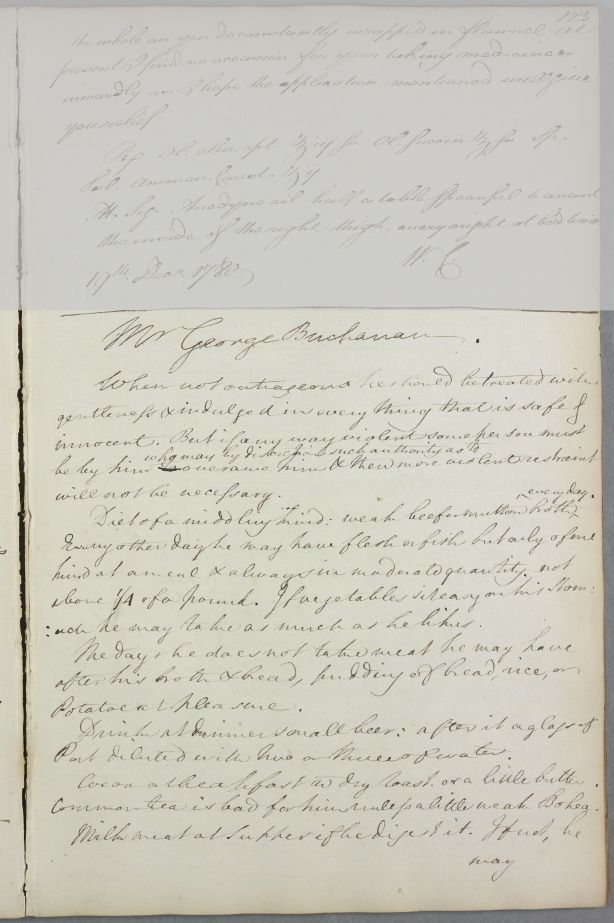 123
the whole as you do constantly wrapped in flannel at
present, I find no occasion for your taking medicines
inwardly and I hope the application mentioned will give
you relief.
Rx Ol. oliv. opt. ʒiij ss Ol. Succin ʒ ss Sp.
Sal. Ammon. Caust. ʒij
M. Sig. Anodyne oil half a table spoonful to anoint
the inside of the right thigh, every night at bed time
17th Decr. 1780 W. C.
Mr George Buchanan.
When not outrageous he should be treated with
gentleness & indulged in every thing that is safe &
innocent. But if any way violent some person must
who may by discretion such authority as to
be by him overawe him & then more violent restraint
will not be necessary.
every day.
Diet of a middling kind: weak beef or mutton broth
Every other day he may have flesh or fish but only of one
kind at a meal & always in moderate quantity. not
above 1/4 of a pound. If vegetables sit easy on his Stom:
:ach he may take as much as he likes.
The days he does not take meat he may have
after his broth & bread, pudding of bread, rice, or
Potatoe at pleasure.
Drink at dinner small beer: after it a glass of
Port diluted with two or three of water.
Cocoa at breakfast w dry toast or a little butter.
Common tea is bad for him unless a little weak Bohea.
Milk meat at Supper if he digest it. If not, he
may